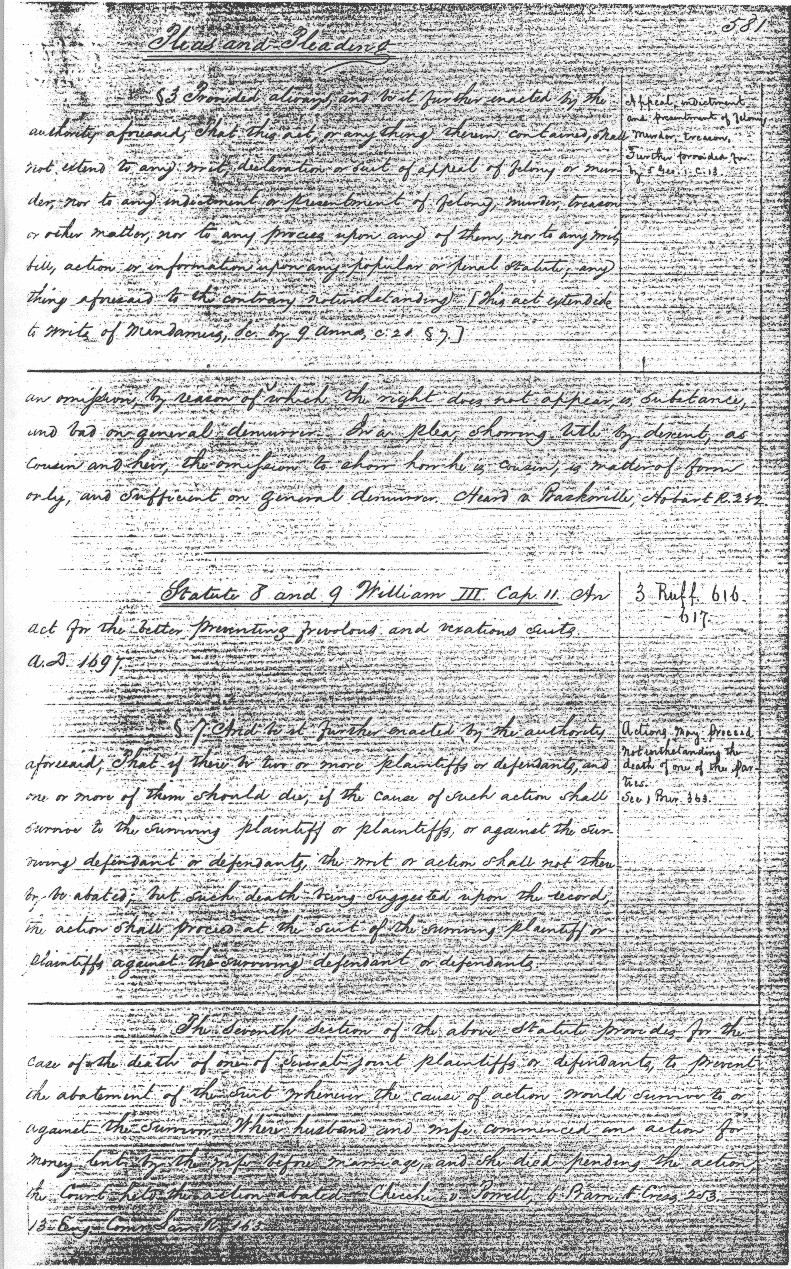 581
Pleas and Pleading
§3 Provided always, and be it further enacted by the
authority aforesaid, That this act, or any thing therein contained, shall
not extend to any writ, declaration or suit of appeal of felony or mur
der, nor to any indictment or presentment of felony, murder, treason
or other matter, nor to any process upon any of them, nor to any writ,
bill, action or information upon any popular or penal statute, any
thing aforesaid to the contrary notwithstanding. [This act extended
to writs of Mandamus, &c. by 9 Anne, c. 20 § 7.]
Appeal, indictment
and presentment of felony,
murder, treason,
Further provided for
by 5 Geo. 1. C. 13.
an omission, by reason of which the right does not appear, is substance,
and bad on general demurrer. In a plea, showing title by descent, as
Cousin and heir, the omission to show how he is cousin, is matter of form
only, and sufficient on general demurrer. Heard v. Baskerville, Hobart R. 232
Statute 8 and 9 William III. Cap. 11. An
act for the better preventing frivolous and vexatious suits.
A.D. 1697.
3 Ruff. 616-
617.
§ 7 And be it further enacted by the authority
aforesaid, That if there be two or more plaintiffs or defendants, and
one or more of them should die, if the cause of such action shall
survive to the surviving plaintiff or plaintiffs, or against the sur-
viving defendant or defendants, the writ or action shall not there
by be abated; but such death being suggested upon the record,
the action shall proceed at the suit of the surviving plaintiff or
plaintiffs against the surviving defendant or defendants.
Actions may proceed
notwithstanding the
death of one of the par-
ties.
See 1 Burr. 363.
The Seventh Section of the above Statute provides for the
case of the death of one of several joint plaintiffs or defendants, to prevent
the abatement of the suit whenever the cause of action would survive to or
against the survivor. Where husband and wife commenced an action for
money lent by the wife before marriage, and she died pending the action,
the Court held the action abated. Checchi v. Powell, 6 Barn. & Cress. 253.
13 Eng. Com. Law R. 163.